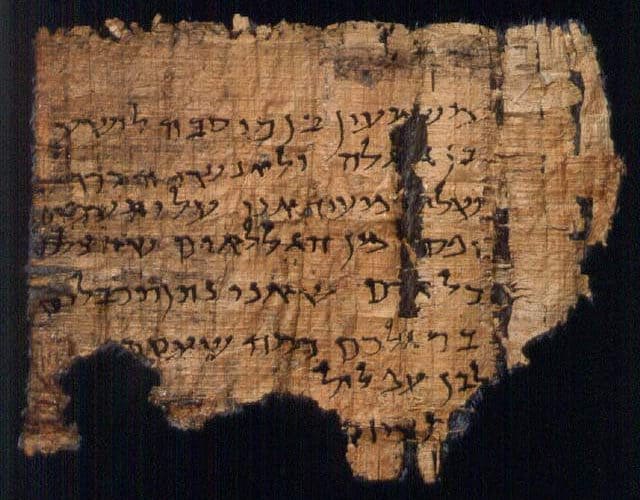 משמעון בן כוסבה לישע
בן גלגלה ולאנשי הכרך
מעיד אני עלי תשמים
מן הגללאים שהצלכם
כל אדם שאני נותן תכבלים
ברגלכם כמה שעסתי
לבן עפלול